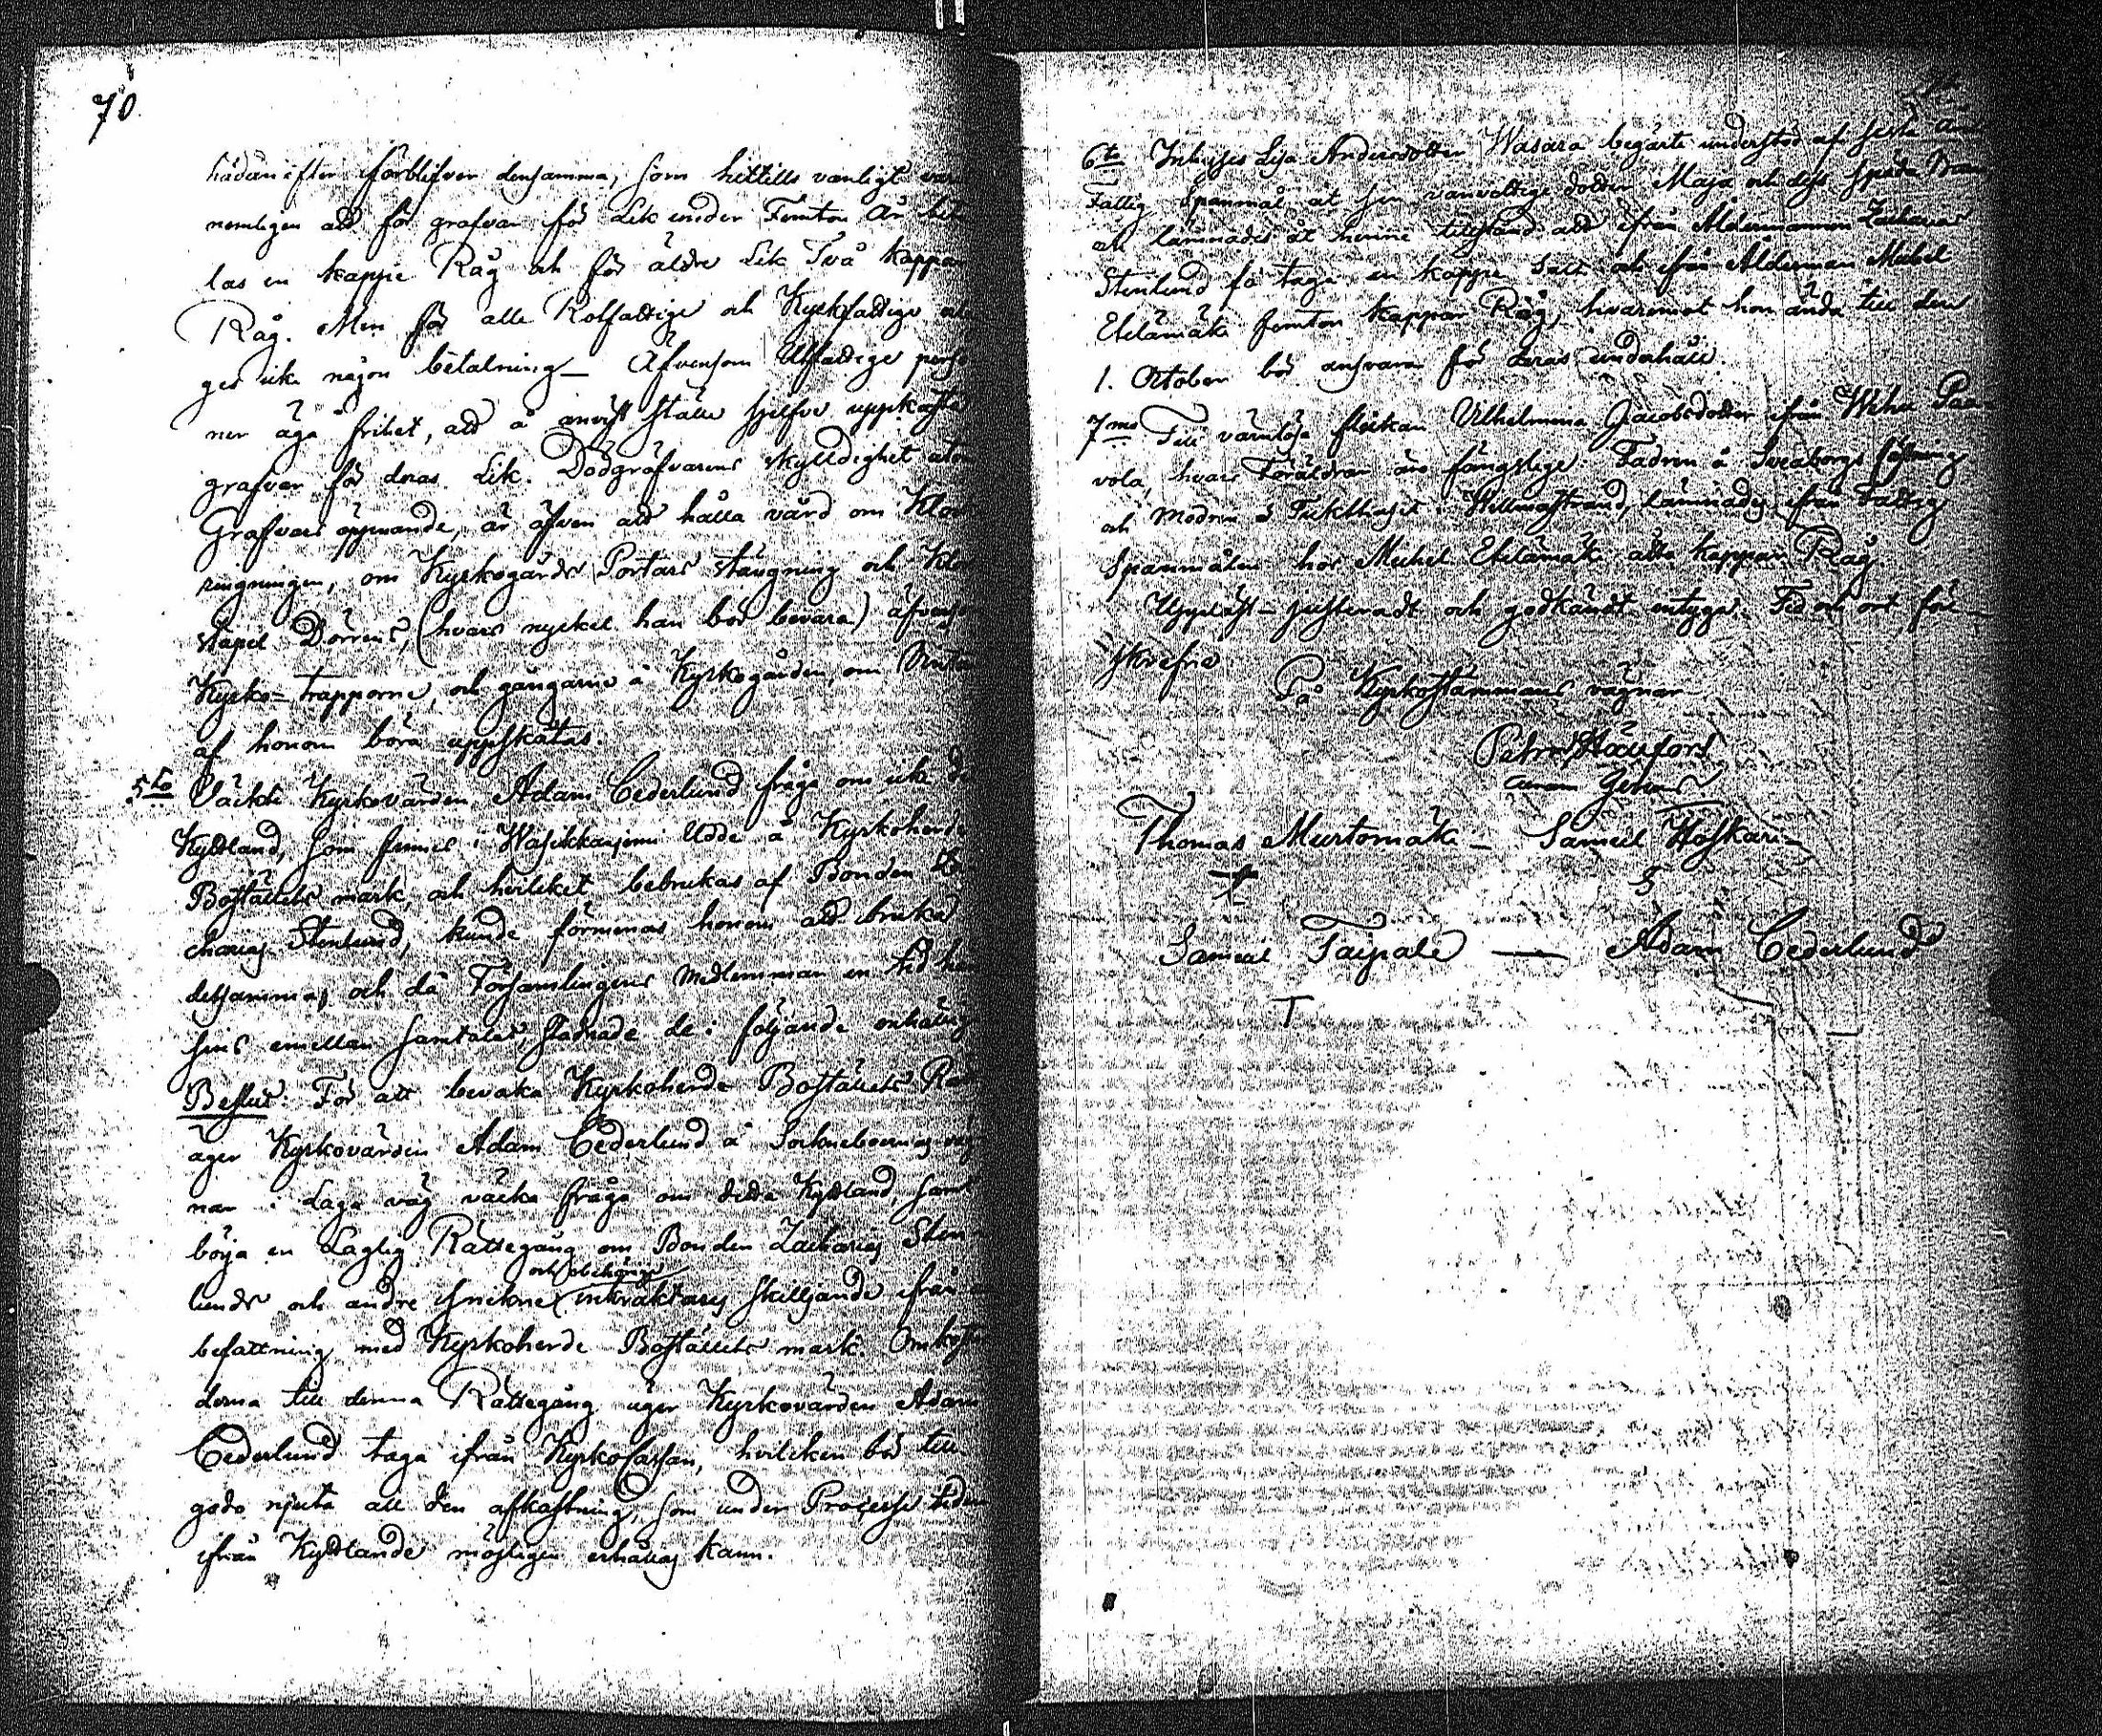 70.
hädanefter förblifver densamma, som hittills vanligt
nemligen att för grafvar för Lik under Femton År
las en kappe Råg och för äldre Lik Två kappar
Råg. Men för alle Rotfattige och Kyrkfattige
ges icke någon betalning – Äfvensom Utfattige
ner äga frihet, att å anvist ställe sjelfve uppkasta
grafvar för deras Lik. Dödgräfvarens skyldighet
Grafvars öppnande, är äfven att hålla vård om
ringningen, om Kyrkogårds Portars stängning och
stapel Dörrens, (hvars nyckel han bör bevara)
Kyrko-trapporne, och gångarne å Kyrkogården, om
af honom böra uppskottas.
5to Väckte Kyrkovärden Adam Cederlund fråga om icke
Kyttland, som finnes i Wasikkaniemi Udde å Kyrkoherde
Boställets mark, och hvilcket bebrukas af Bonden
charias Stenlund, kunde förmenas honom att bruka
detsamma, och då Församlingens Medlemmar en tid
sins emellan samtalat, stadnade de i följande
Beslut: För att bevaka Kyrkoherde Boställets
äger Kyrkovärden Adam Cederlund å Sockneboernas
nar i Laga väg väcka fråga om detta Kyttland, samt
börja en Laglig Rättegång om Bonden Zacharias Sten-
och obehörige
lunds och andre inkräktares skilljande ifrån
befattning med Kyrkoherde Boställets mark.
derna till denna Rättegång äger Kyrkovärden Adam
Cederlund taga ifrån KyrkoCassan, hvilcken bör till
godo njuta all den afkastning, som under Process tiden
ifrån Kyttlandet möjligen erhållas kann.
6to Inhyses Lisa Andersdotter Wasara begärte understöd af
Fattig Spanmål åt sin vanvettige dotter Maja och dess späda
och lämnades åt henne tillstånd att ifrån Åldermannen Zacharias
Stenlund få taga en kappe Salt och ifrån Ålderman Michel
Etelämäki femton kappar Råg, hvaremot hon ända till den
1. October bör ansvara för deras underhåll.
7mo Till värnlösa flickan Vilhelmina Jacobsdotter ifrån
vola, hvars Föräldrar äro fängslige: Fadren å Sveaborgs fästning
och Modren å Tuckthuset i Willmanstrand, lämnades ifrån Fattig
Spanmålen hos Michel Etelämäki åtta kappar Råg.
Uppläst – justeradt och godkändt intygas. Tid och ort för-
skrefne
På Kyrkostämmans vägnar
Petrus
Thomas Murtomäki – Samuel Koskari –
Samuel Taipale — Adam Cederlund
T